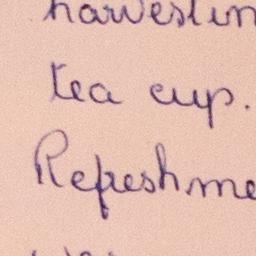 harvestin
tea cup.
Refreshme